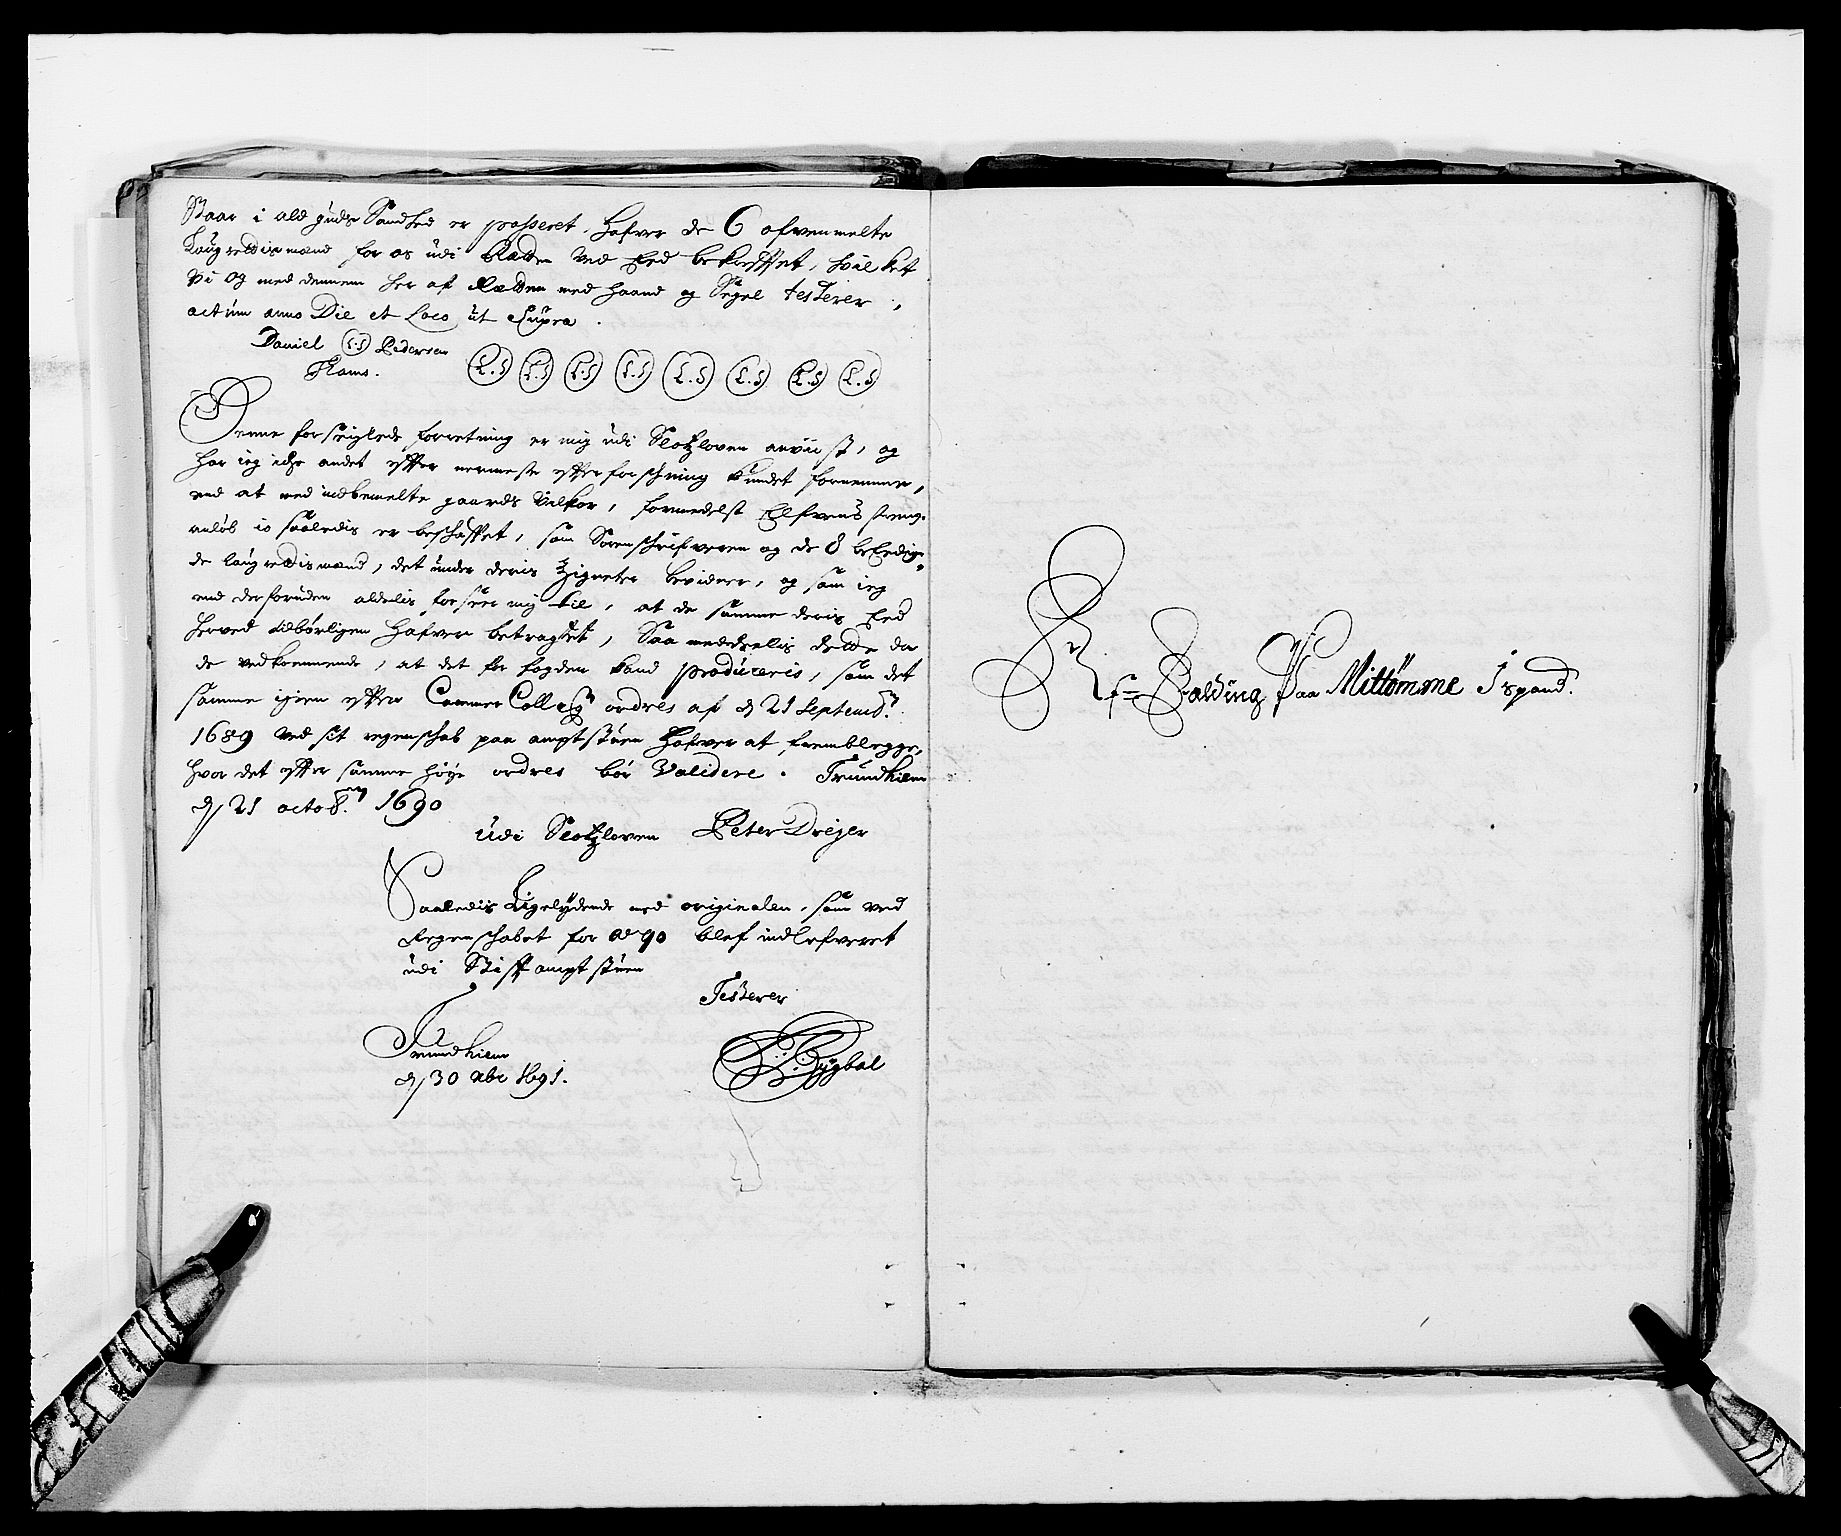 Staar i ald guds Sandhed er passeret, hafver de 6 ofvenmelte
Laugrettismænd for os udi Rætten ved Eed bekræfftet, hvilket
vi og med dennem her af Rætten med haand og Segel testerer,
actum anno Die et Loco ut Supra.
Daniel L.S Pedersen
Hams.
L.S L.S L.S L.S L.S L.S L.S L.S
Denne forseiglede forretning er mig udi Slotzloven anviist, og
har ieg iche andet effter nermeste effterforschning kundet fornemme,
end at med indbemelte gaards vilkor, formedelst Elfvens streng-
anløb io saaledis er beschaffet, som Sorenschrifveren og de 8 beEedig-
de laugrettismænd, det under deris Zigneter bevidner, og som ieg
end desforuden aldelis forseer mig til, at de samme deris Eed
herved tilbørligen hafver betragtet, Saa meddeelis dette da
de vedkommende, at det for fogden kand produceris, som det
samme igien effter Cammer Collegy ordres af d 21 Septemb.
1689 ved sit regenschab paa amptstuen hafver at fremblegge,
hvor det effter samme høye ordres bør Validere. Trundhiem
d 21 octob. 1690
udi Slotzloven Peter Dreyer
Saaledis Ligelydende med originalen, som ved
Regenschabet for Ao 90 blef indlefveret
udi Stifftamptstuen
Testerer
Trundhiem
d 30 xbr 1691.
Bygbal
Af-Falding Paa Mittømme Ispand.